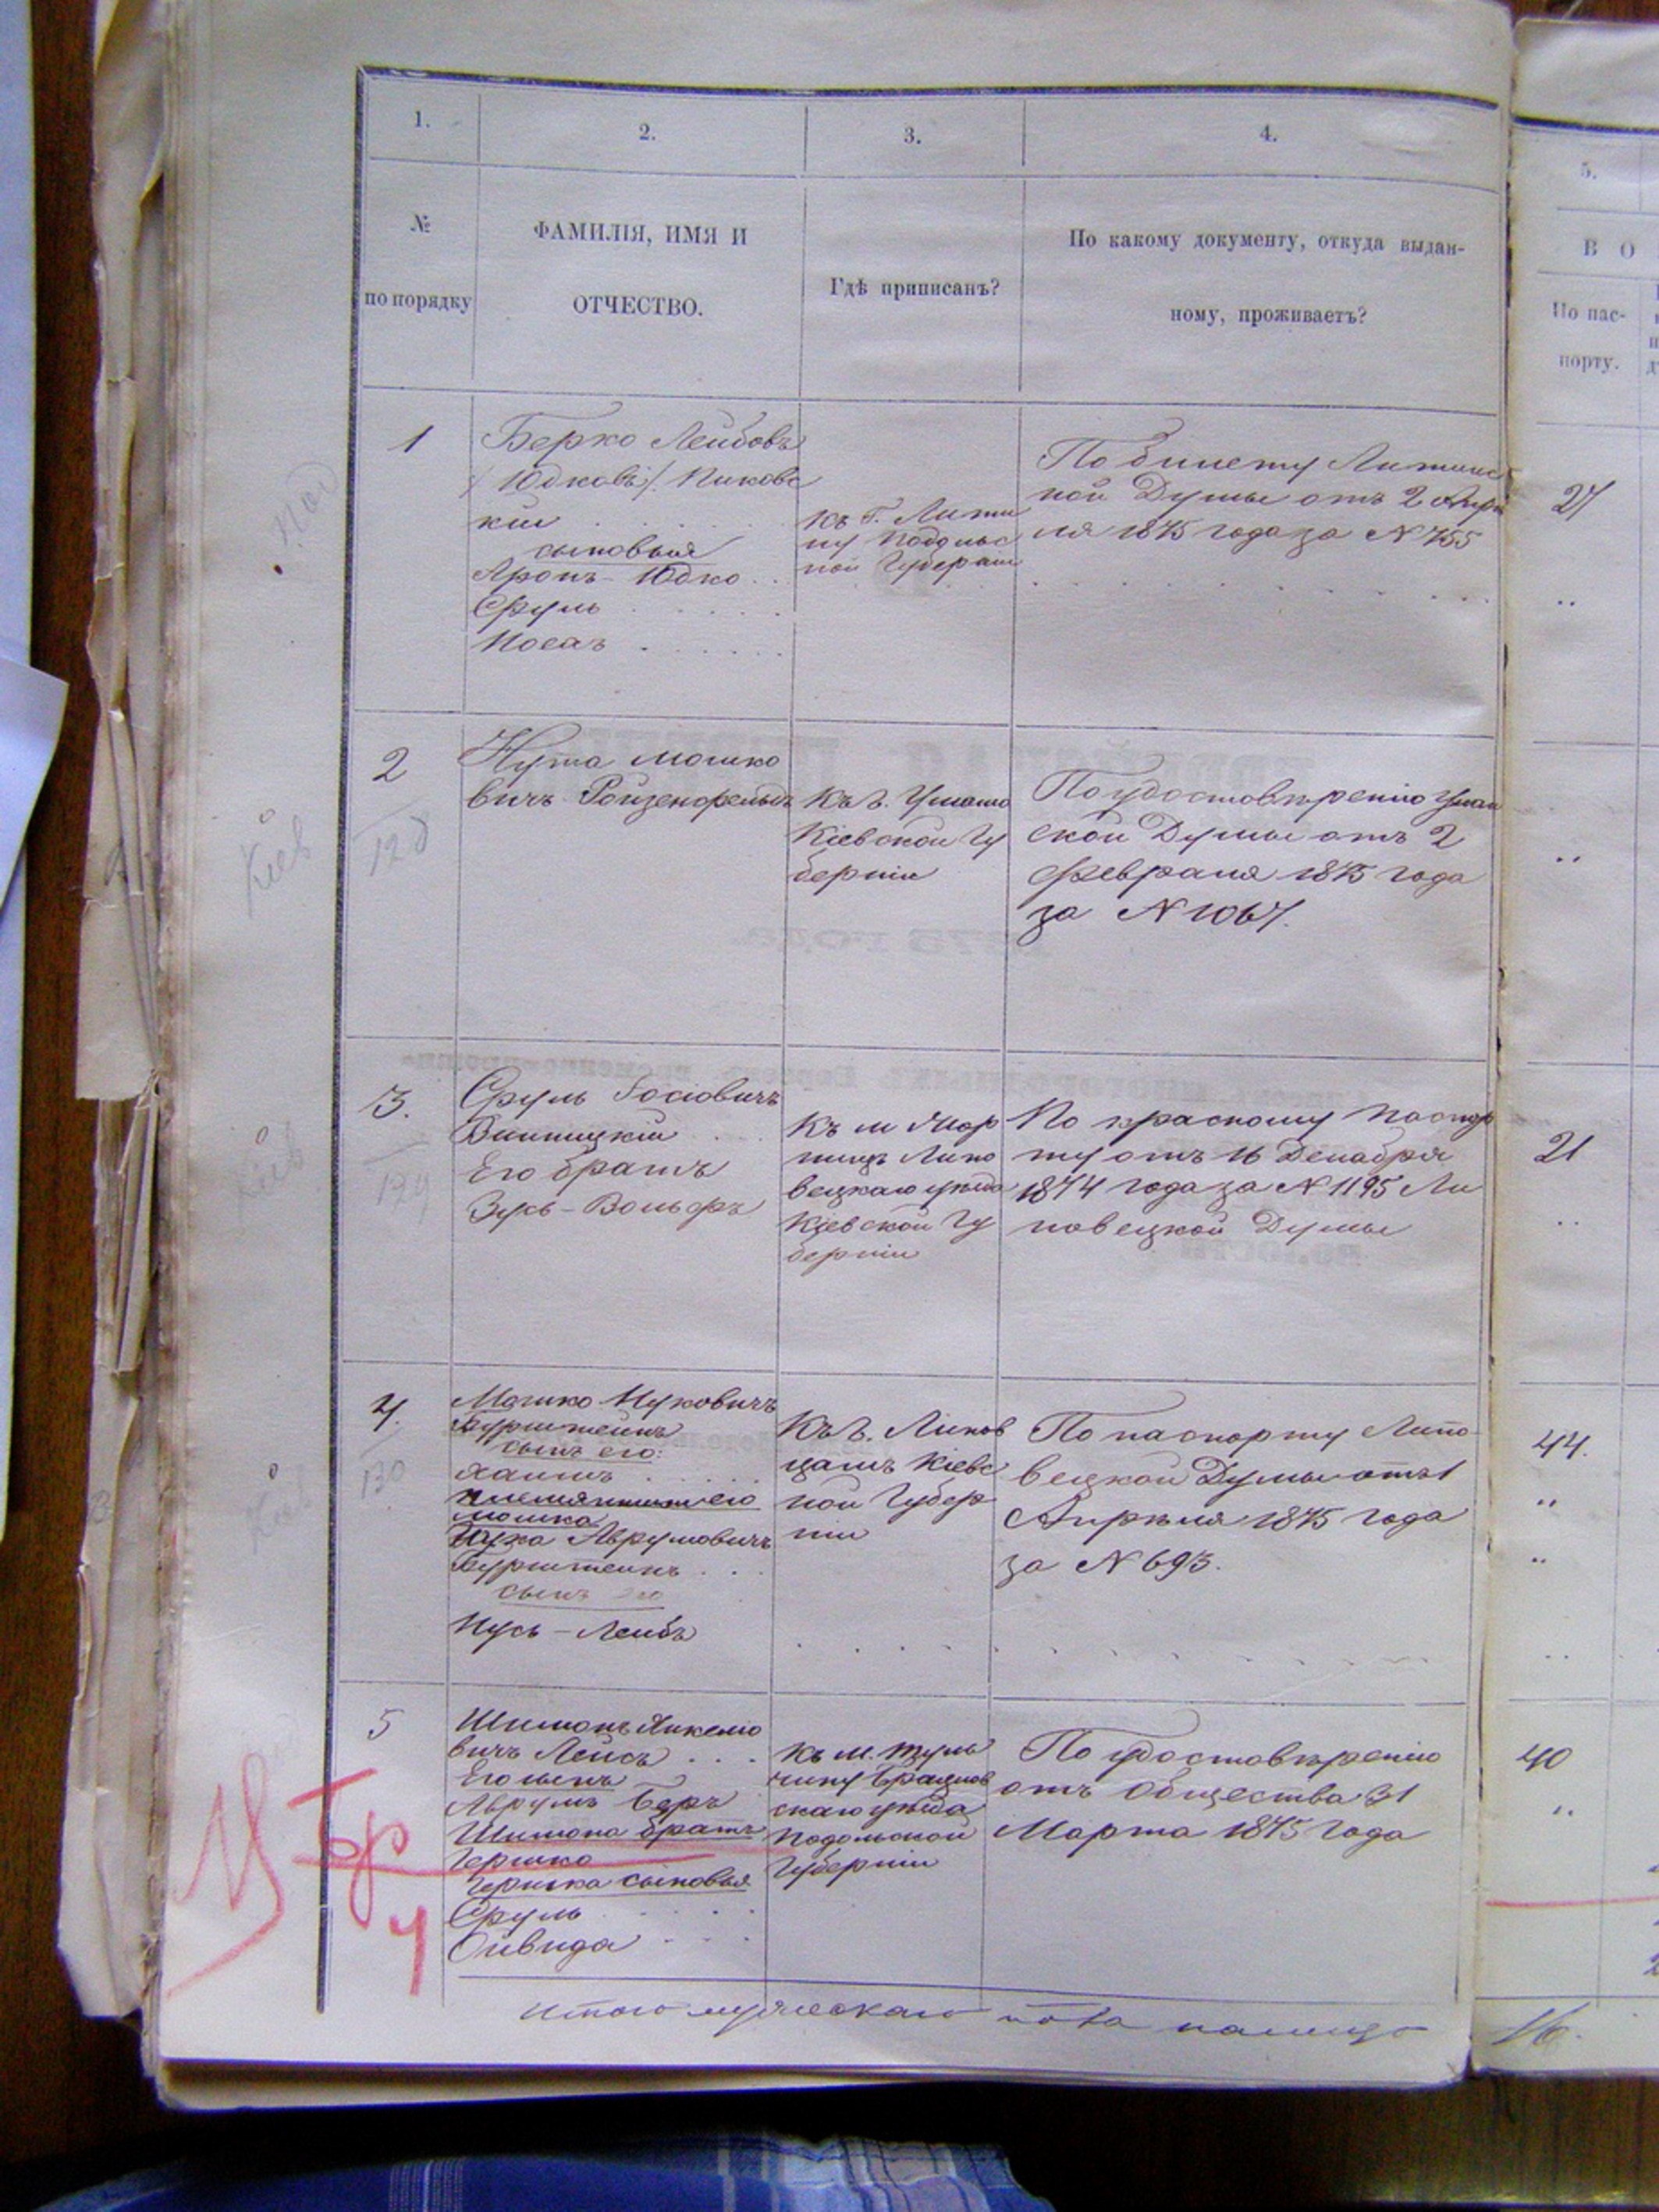 1.
2.
3.
4.
5.
№
по порядку
ФАМИЛІЯ, ИМЯ И
ОТЧЕСТВО.
Гдѣ приписанъ?
По какому документу, откуда выдан-
ному, проживаетъ?
В О
По пас-
порту.
Под
1
Берко Лейбовъ
/Юдковъ/. Пиковс
кій
сыновья
Аронъ-Юдко
Сруль
Иосъ
къ Г. Лити
ну Подольс
кой Губерніи
По билету Литинс
кой Думы отъ 2 Апрѣ
ля 1875 года за N 755
27
2
128
Кіев
Нута Мошко
вичъ Ройзенфельдъ
Къ Г. Умань
Кіевской Гу
берніи
По удостовѣренію Уман
ской Думы отъ 2
Февраля 1875 года
за N 1067.
3.
129
Кіев
Сруль Іосіовичъ
Винницкій
Его братъ
Зусь-Вольфъ
Къ м
Липо
вецкаго уѣзда
Кіевской Гу
берніи
По красному паспор
ту отъ 16 Декабря
1874 года за N 1195 Ли
повецкой Думы
21
4.
130
Кіев
Мошко Нуховичъ
Бурштейнъ
сынъ его:
Хаимъ
племянникъ его
Мошка
Нуха Аврумовичъ
Бурштейнъ
сынъ его
Нусь-Лейбъ
Къ Г. Липов
цамъ Кіевс
кой Губер
ніи
По паспорту Липо
вецкой Думы отъ 1
Апрѣля 1875 года
за N 693.
44.
5
Шимонъ Янкеліо
вичъ Лейсъ
Его сынъ
Аврумъ Беръ
Шимона братъ
Гершко
Гершка сыновья
Сруль
Ойвида
Къ м. Туль
чину Брацлав
скаго уѣзда
Подольской
Губерніи
По удостовѣренію
отъ Общества 31
Марта 1875 года
40
Бр
4
Итого мужескаго пола налицо
16.